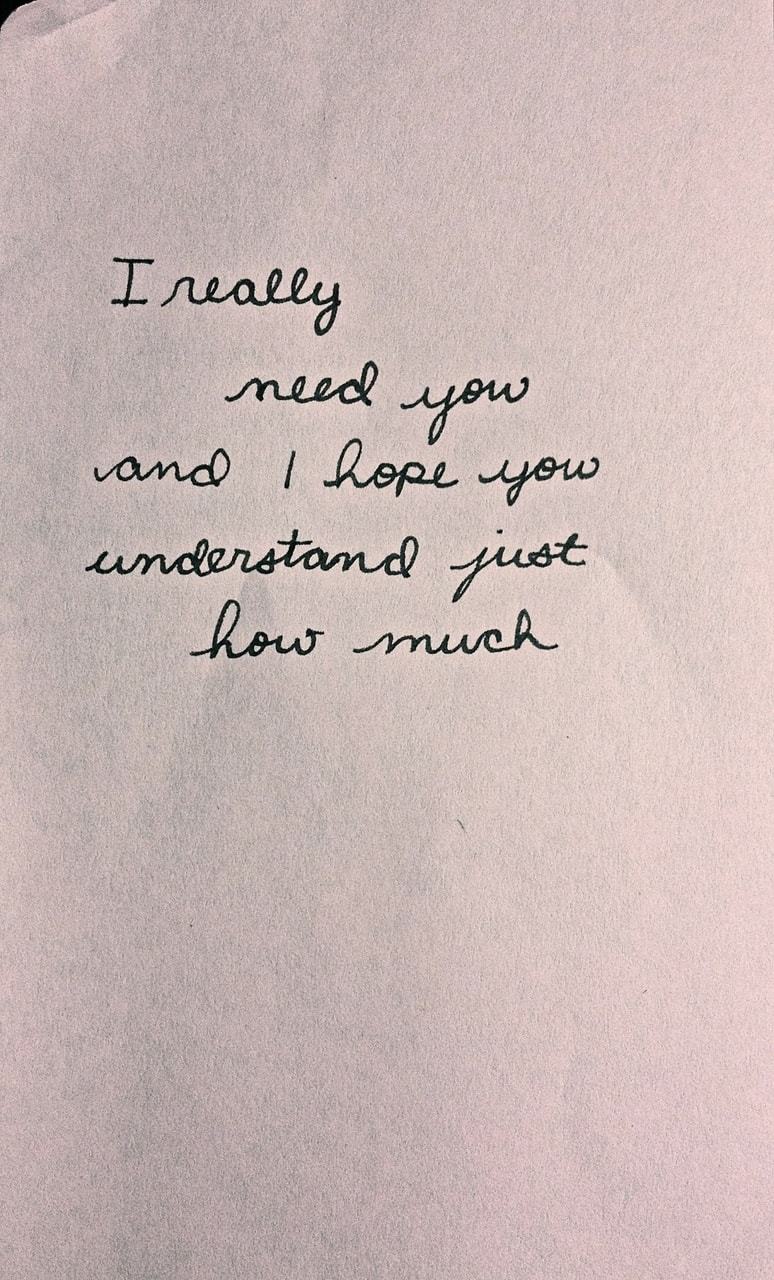 I really
need you
and I hope you
understand just
how much